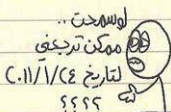 لوسمحت ..
ممكن ترجعني
لتاريخ ٢٠١١/١/٢٤
؟؟؟؟